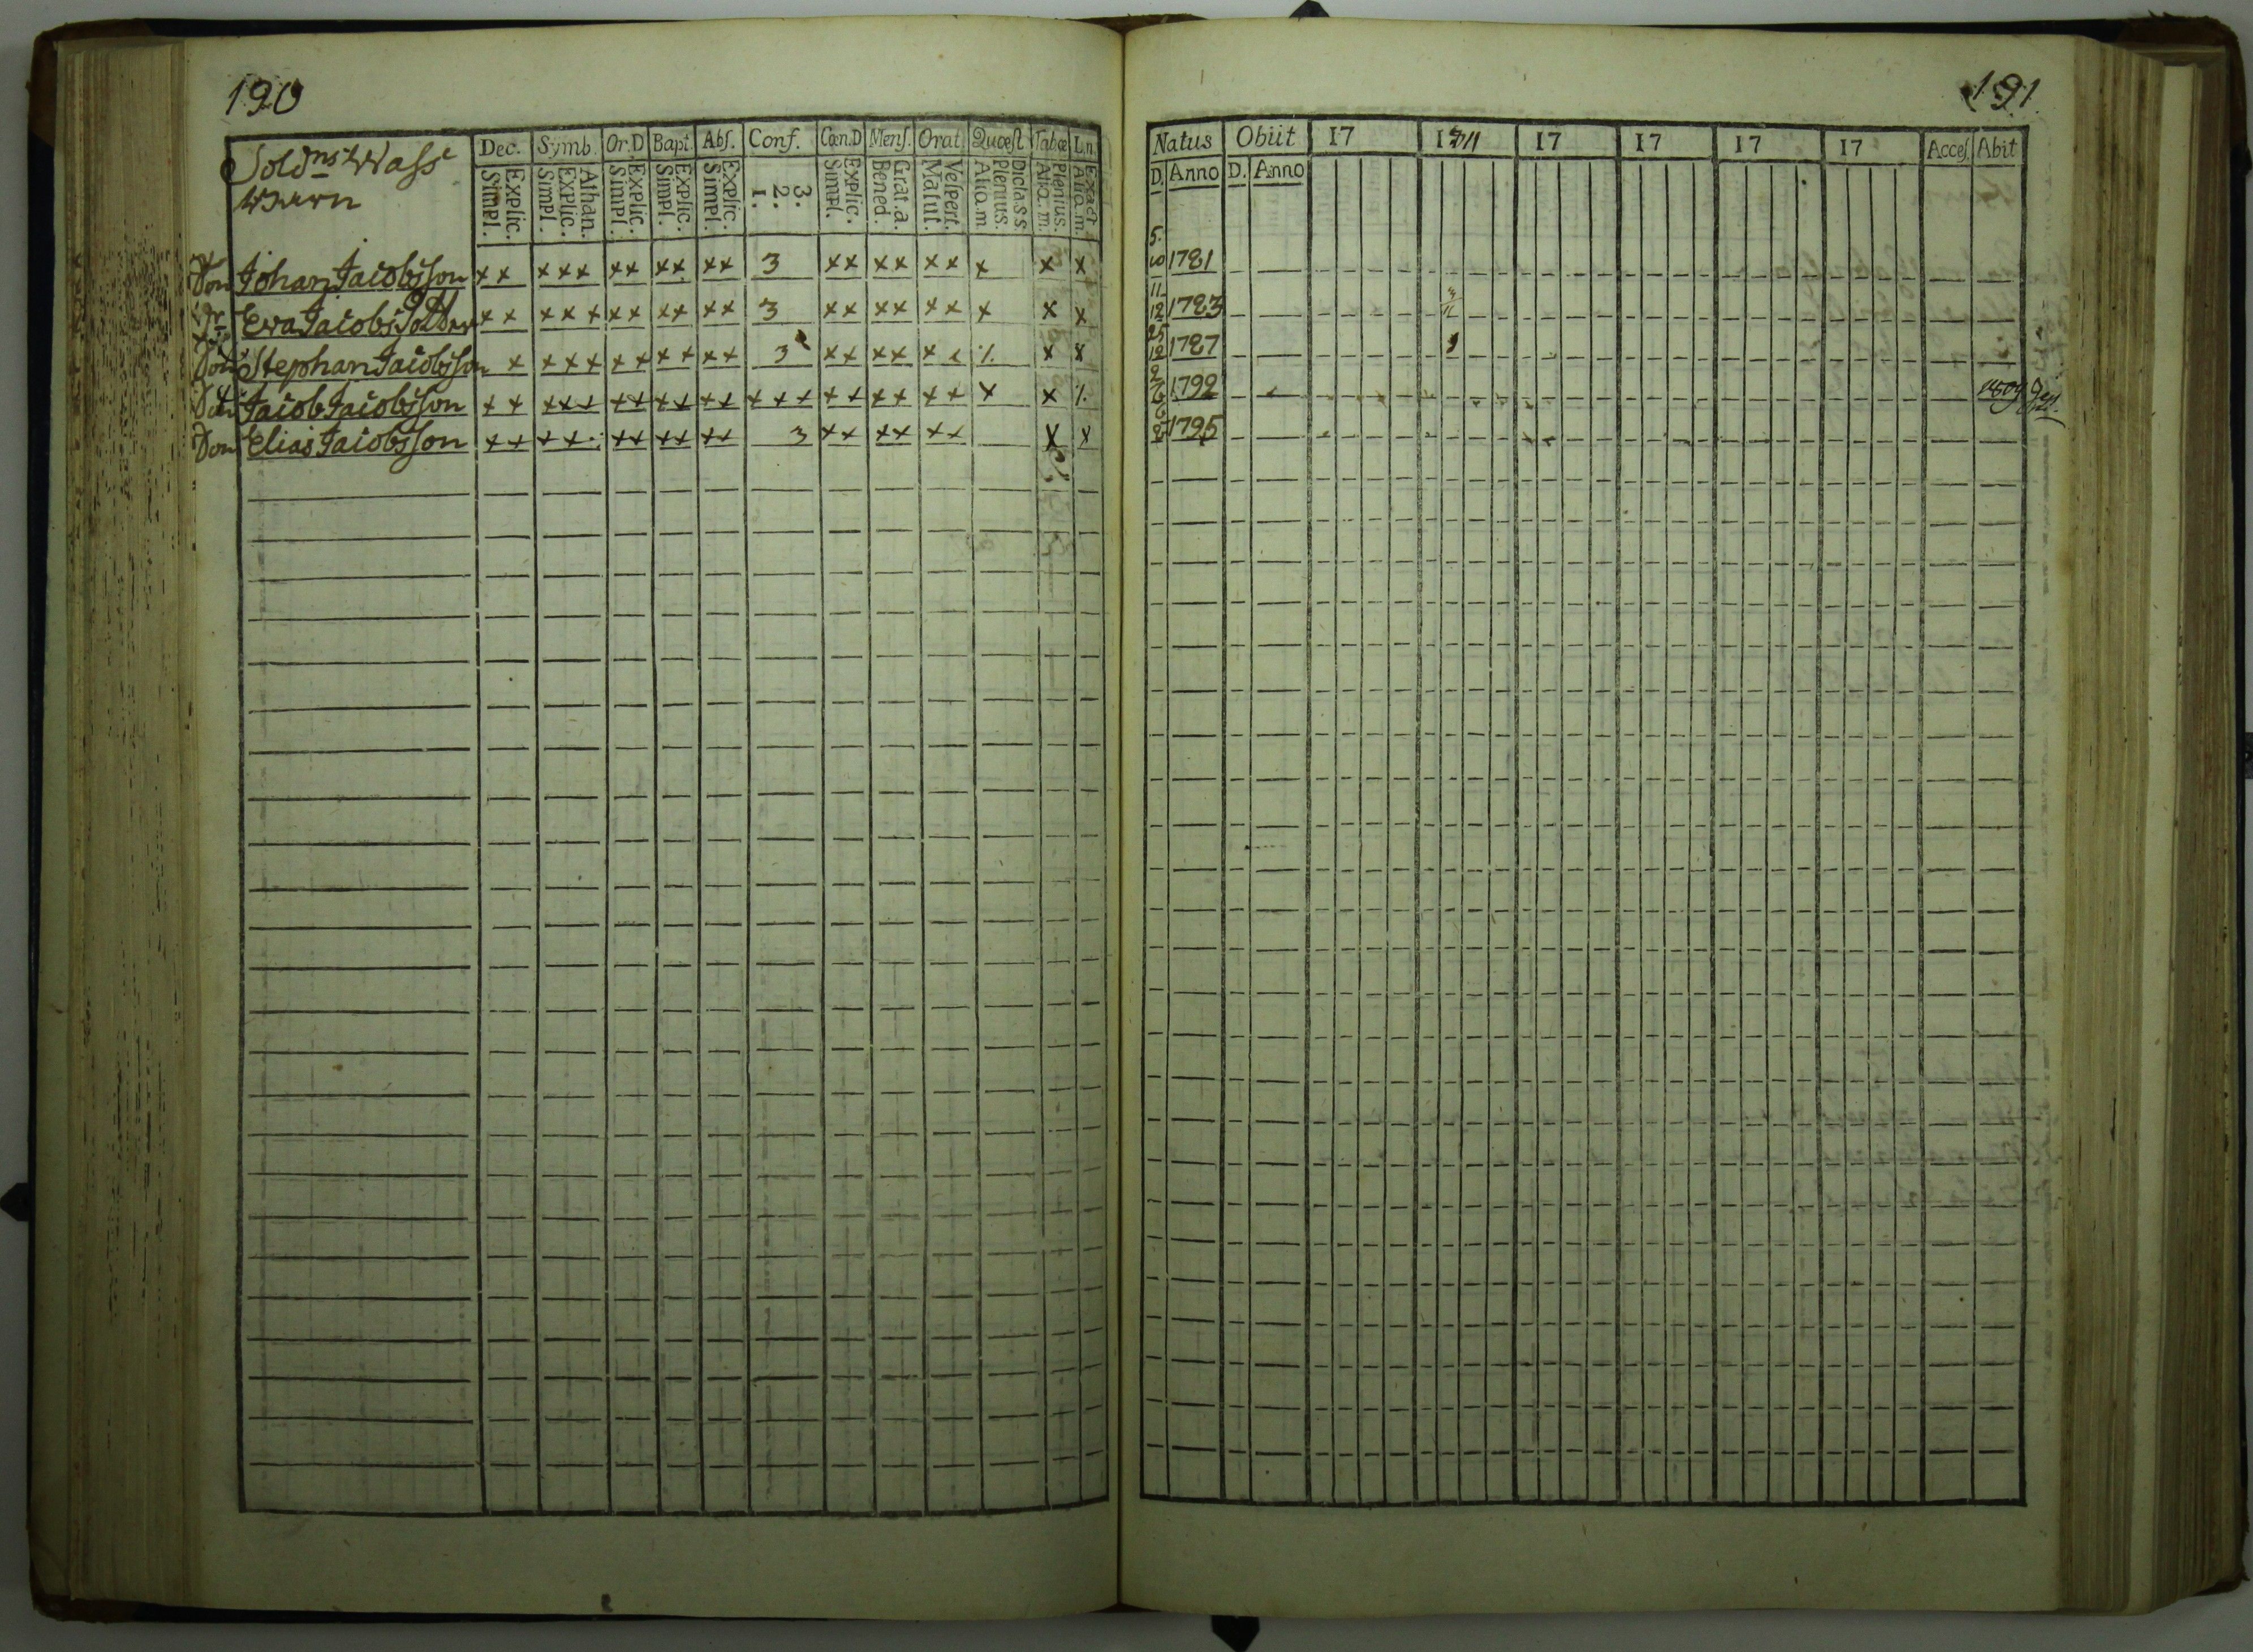 190
Sold:ns Wass
Barn
Dec. Symb. Or.D Bapt. Abs. Conf. Cœn.D Mens. Orat. Quæst Tabœ L.n.
Explic. Simpl. Athan. Explic. Simpl. Explic. Simpl. Explic. Simpl. Explic. Simpl. 3. 2. 1. Explic. Simpl. Grat.a. Bened. Vespert. Matut. Dictass Plenius. Aliq.m Plenius. Aliq.m. Exact Aliq.m.
Son Johan Jacobsson x x x x x x x x x x x 3 x x x x x x x x x
Dr Eva Jacobs Dotter x x x x x x x x x x x 3 x x x x x x x x x
Son Stephan Jacobsson x x x x x x x x x x 3 x x x x x x ⁒ x x
Son Jacob Jacobsson x x x x x x x x x x x x x x x x x x x x x x x ⁒
Son Elias Jacobsson x x x x x x x x x x 3 x x x x x x x x
191
Natus Obiit 17 1811 17 17 17 17 Acces. Abit
D. Anno D. Anno
5. 10 1781
11 12 1783
25 12 1787
2 6 1792 1809
1795